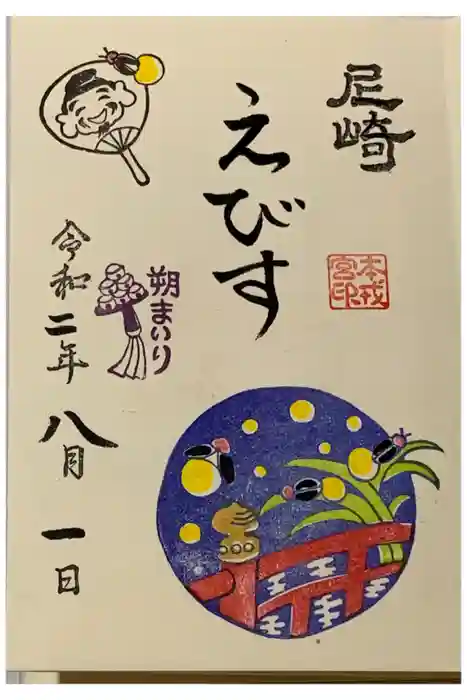 尼崎
えびす
本戎
宮印
朔まいり
令和二年
八月一日